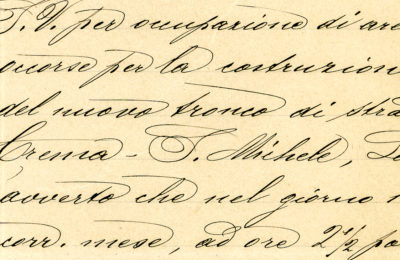 S. V. per occupazione di are
occorse per la costruzion
del nuovo tronco di stra
Crema - S. Michele,
avverto che nel giorno
corr. mese, ad ore 2 1/2 po